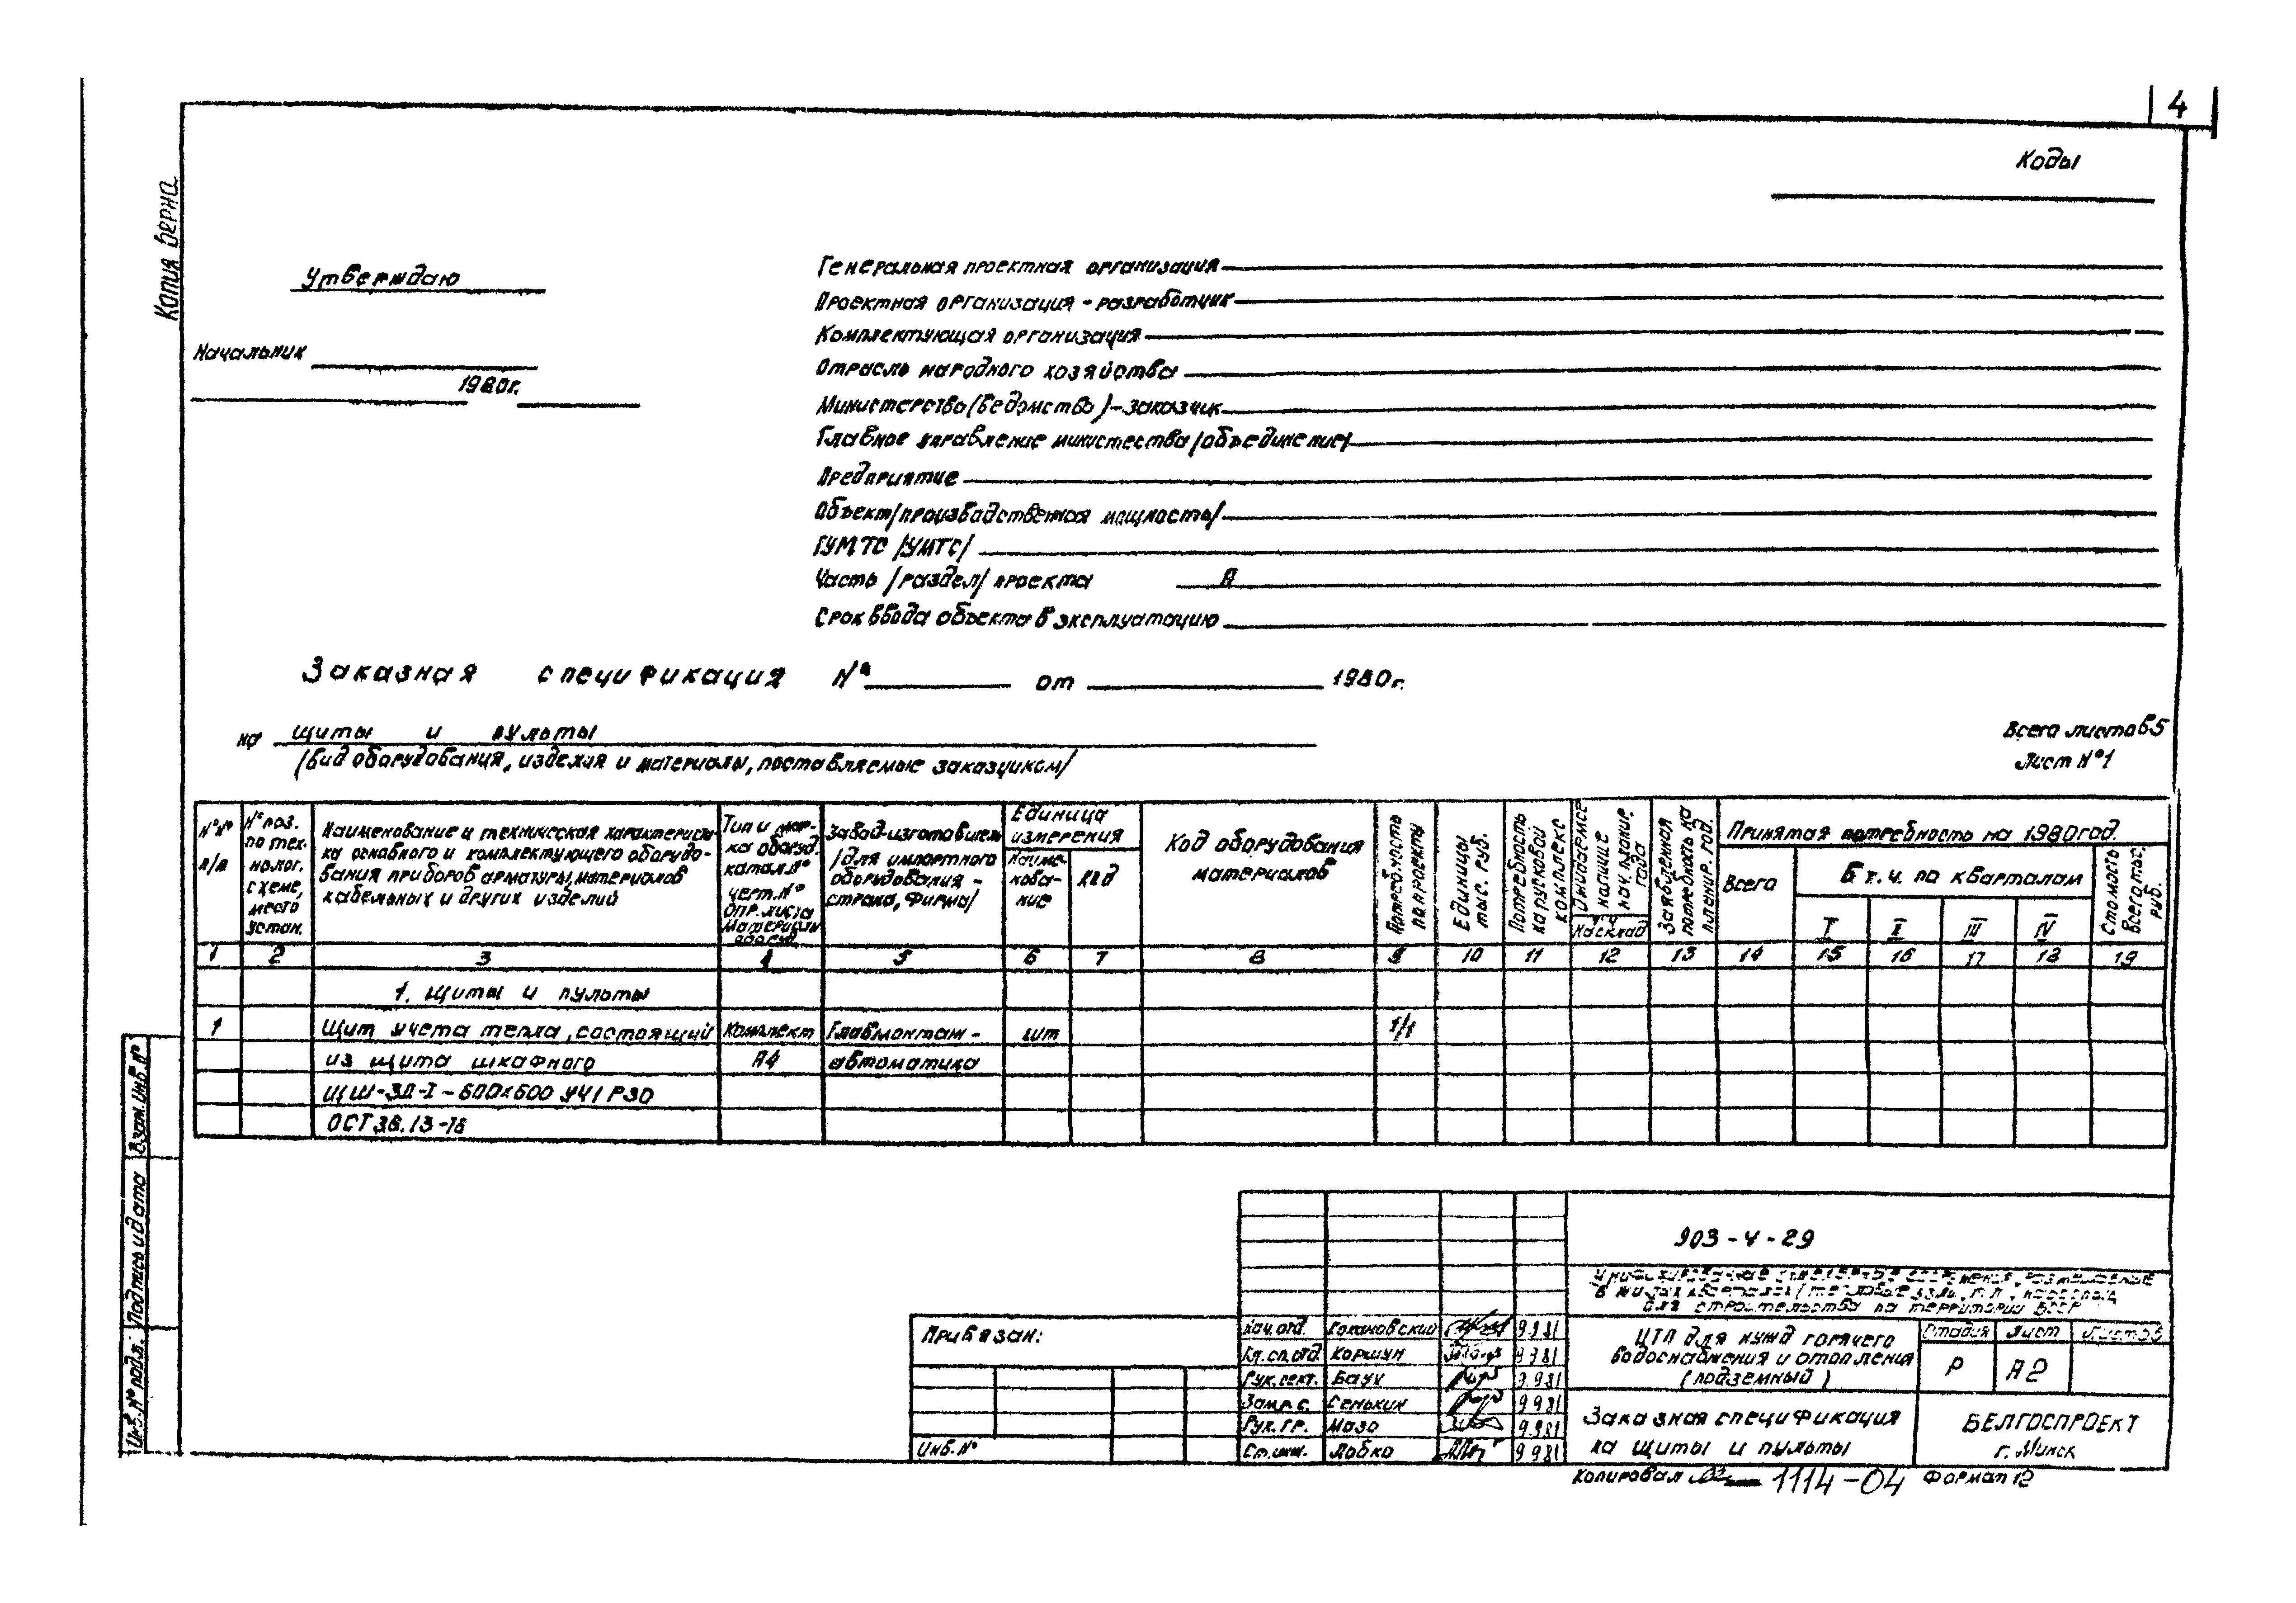 4
Коды
Копия верна
Утверждаю
Начальник
1980г.
Генеральная проектная организация
Проектная организация - разработчик
Комплектующая организация
Отрасль народного хозяйства
Министерство (ведомство) - заказчик
Главное управление министества /объединение/
Предприятие
Объект /производственная мощность/
ГУМТС /УМТС/
Часть /раздел/ проекта А
Срок ввода объекта в эксплуатацию
Заказная спецификация № от 1980г.
на щиты и пульты
/вид оборудования, изделия и материалы, поставляемые заказчиком/
Всего листов 5
Лист №1
№№ п/п
№ поз. по тех- нолог. схеме, место устан.
Наименование и техническая характерист-
ка основного и комплектующего оборудо-
вания приборов арматуры, материалов
кабельных и других изделий
Тип и мар-
ка оборуд.
катал. №
черт. №
опр. листа
Материалы
оборуд.
Завод-изготовител
/для импортного
оборудования -
страна, фирма/
Единица измерения
Наиме- нова- ние
код
Код оборудования материалов
Потребность по проекту
Единицы тыс. руб.
Потребность на пусковой комплекс
Ожидаемое наличие на нач. план. года
т.ч. на склад
Заявленная потребность на планир. год.
Принятая потребность на 1980год.
Всего
в т.ч. по кварталам
I II III IV
Стомость Всего тыс. руб.
1 2 3 4 5 6 7 8 9 10 11 12 13 14 15 16 17 18 19
1. Щиты и пульты
1 Щит учета тепла, состоящий Комплект Главмонтаж- шт 1/1
из щита шкафного А4 автоматика
ЩШ-ЗД-I-600х600 УЧ1 Р30
ОСТ 36.13-76
Взам. инв. №
Подпись и дата
Инв. № подл.
903-4-29
для строительства на территории БССР
Привязан:
Инв. №
Нач. отд. Гокановский 9.9.81
Гл. сп. отд. Коршун 9.9.81
Рук. сект. Баук 9.9.81
Зам. р. с. Сенькин 9.9.81
Рук. гр. Мазо 9.9.81
Ст. инж. Лобко 9.9.81
ЦТП для нужд горячего
водоснабжения и отопления
(подземный)
Стадия Лист Листов
Р А2
Заказная спецификация
на щиты и пульты
БЕЛГОСПРОЕКТ
г. Минск
Копировал 1114-04 Формат 12